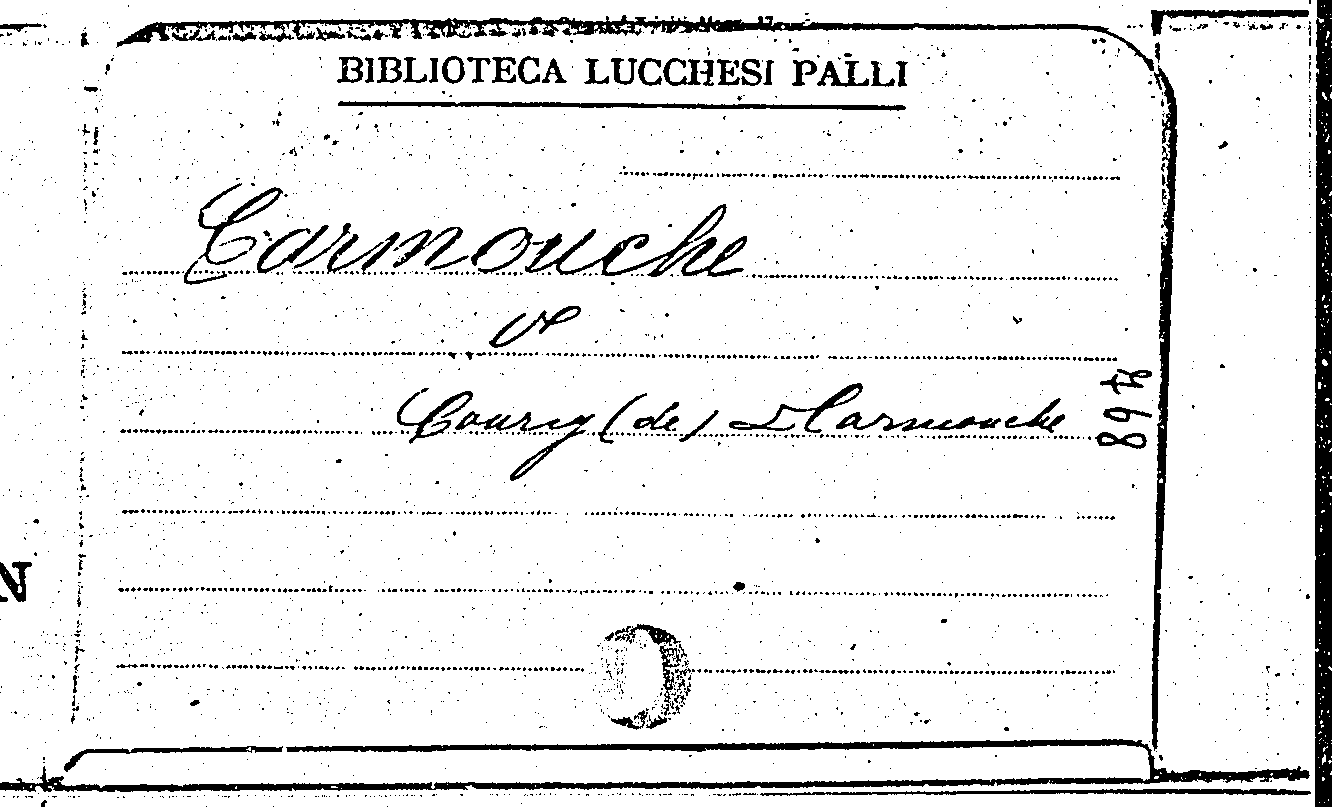 BIBLIOTECA LUCCHESI PALLI
Carmouche
ve
Courcy (de) & Carmouche
N